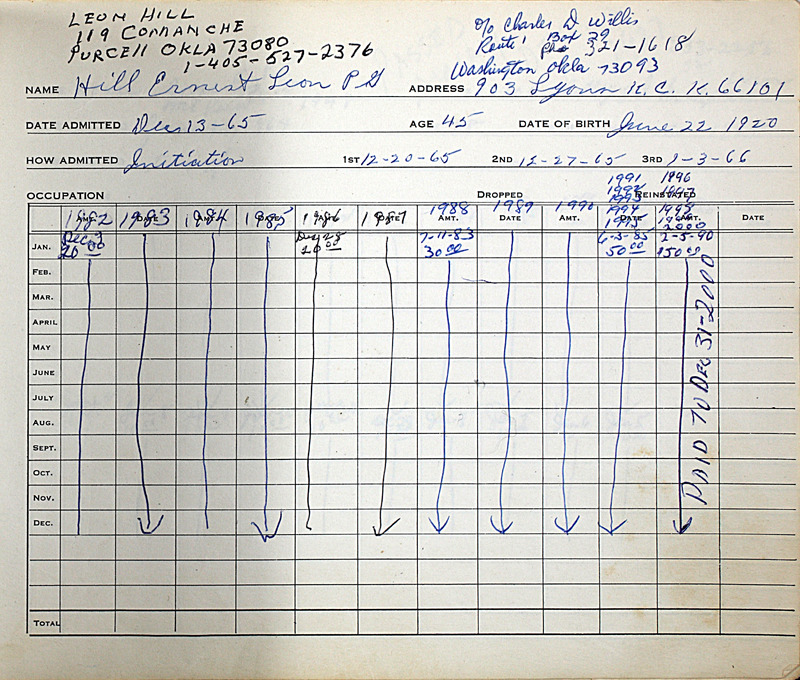 LEON HILL
119 COMANCHE
PURCELL OKLA 73080
1-405-527-2376
c/o Charles D Willis
Route 1 Box 29
Pho 321-1618
Washington Okla 73093
NAME Hill Ernest Leon P G ADDRESS 903 Lyons K.C. K. 66101
DATE ADMITTED Dec 13-65 AGE 45 DATE OF BIRTH June 22 1920
HOW ADMITTED Initiation 1ST 12-20-65 2ND 12-27-65 3RD 1-3-66
OCCUPATION DROPPED REINSTATED
1991 1996
1992 1997
1993 1998
1994 1999
1995 2000
1982 1983 1984 1985 1986 1987 1988 1989 1990
AMT. DATE AMT. DATE AMT. DATE AMT. DATE AMT. DATE AMT. DATE
JAN. Dec 9 20 00 Dec 28 20 00 7-11-83 30 00 6-3-85 50 00 2-5-90 50 00
FEB.
MAR.
APRIL
MAY
JUNE
JULY
AUG.
SEPT.
OCT.
NOV.
DEC.
TOTAL
PAID TO DEC 31-2000